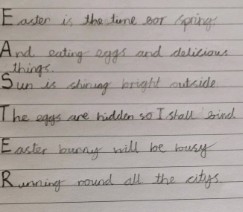 Easter is the time for spring
And eating eggs and delicious
things.
Sun is shining bright outside
The eggs are hidden so I shall find
Easter bunny will be busy
Running round all the citys.